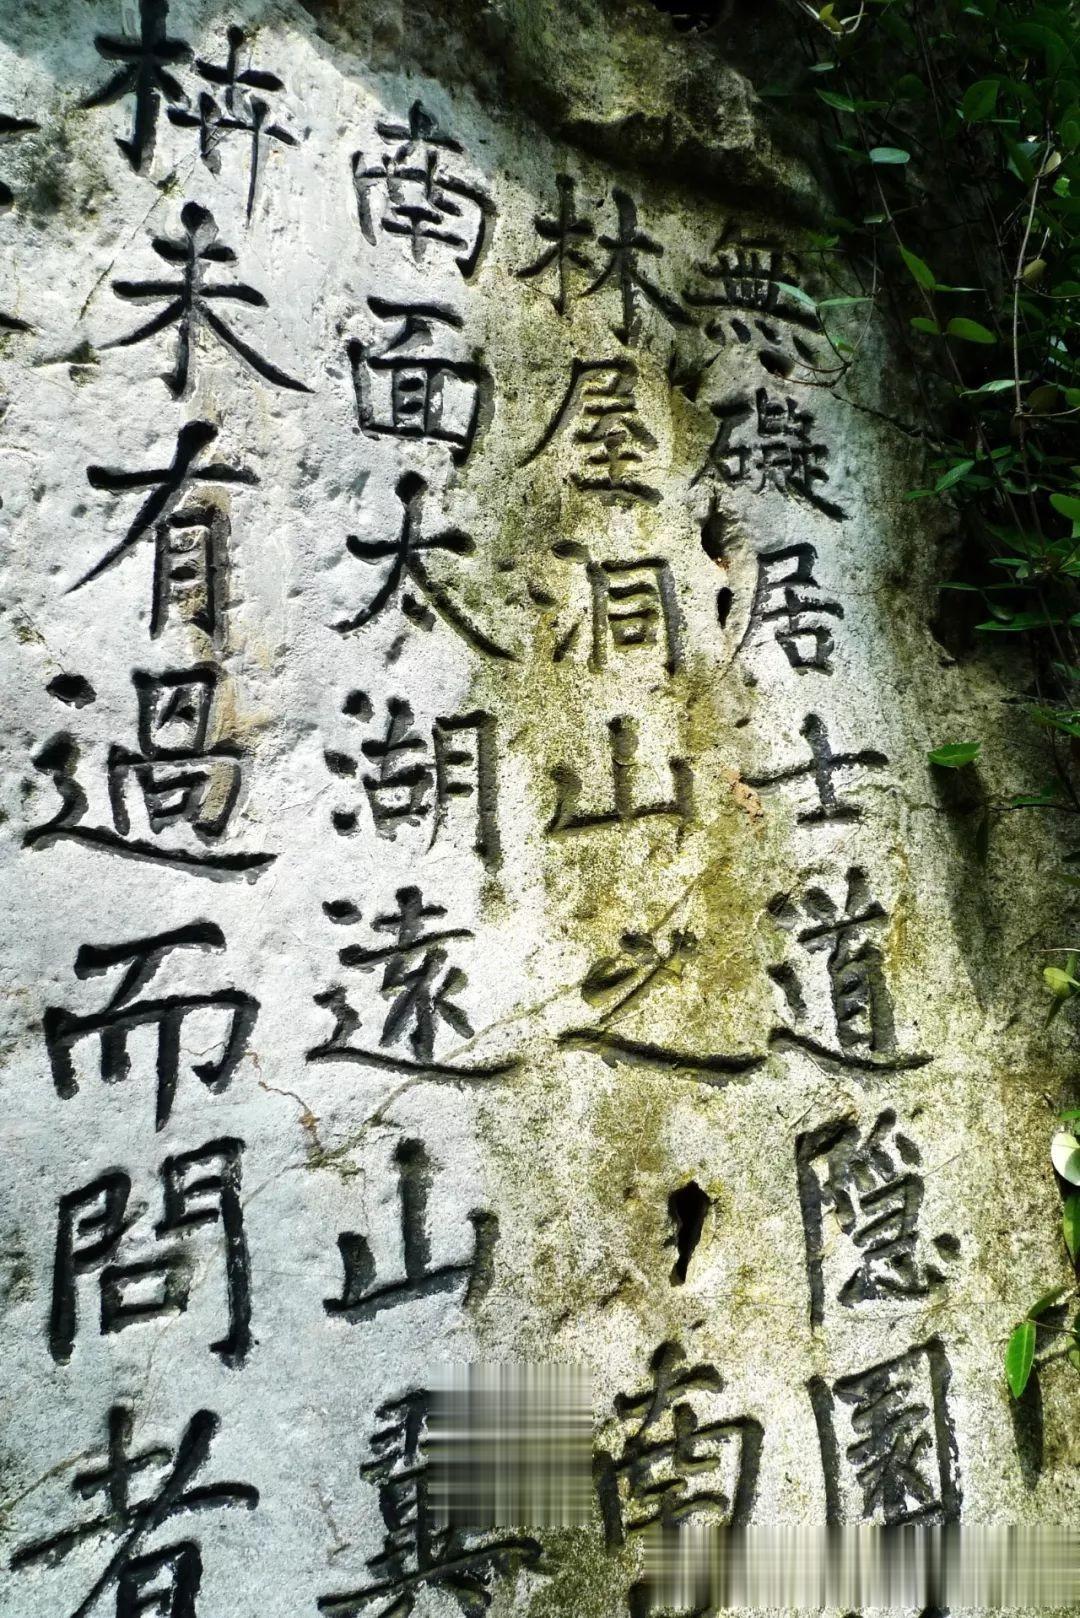 無礙居士道隱園
林屋洞山之南
南面太湖遠山翼
枿未有過而問者